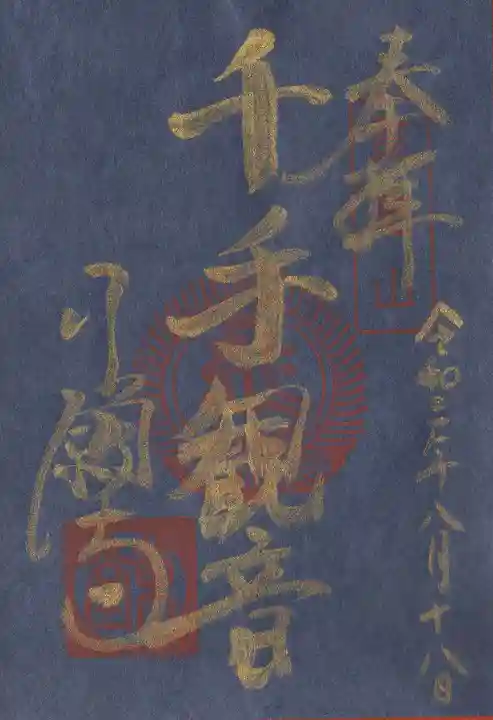 奉拝
令和三年八月十八日
千手観音
行願寺